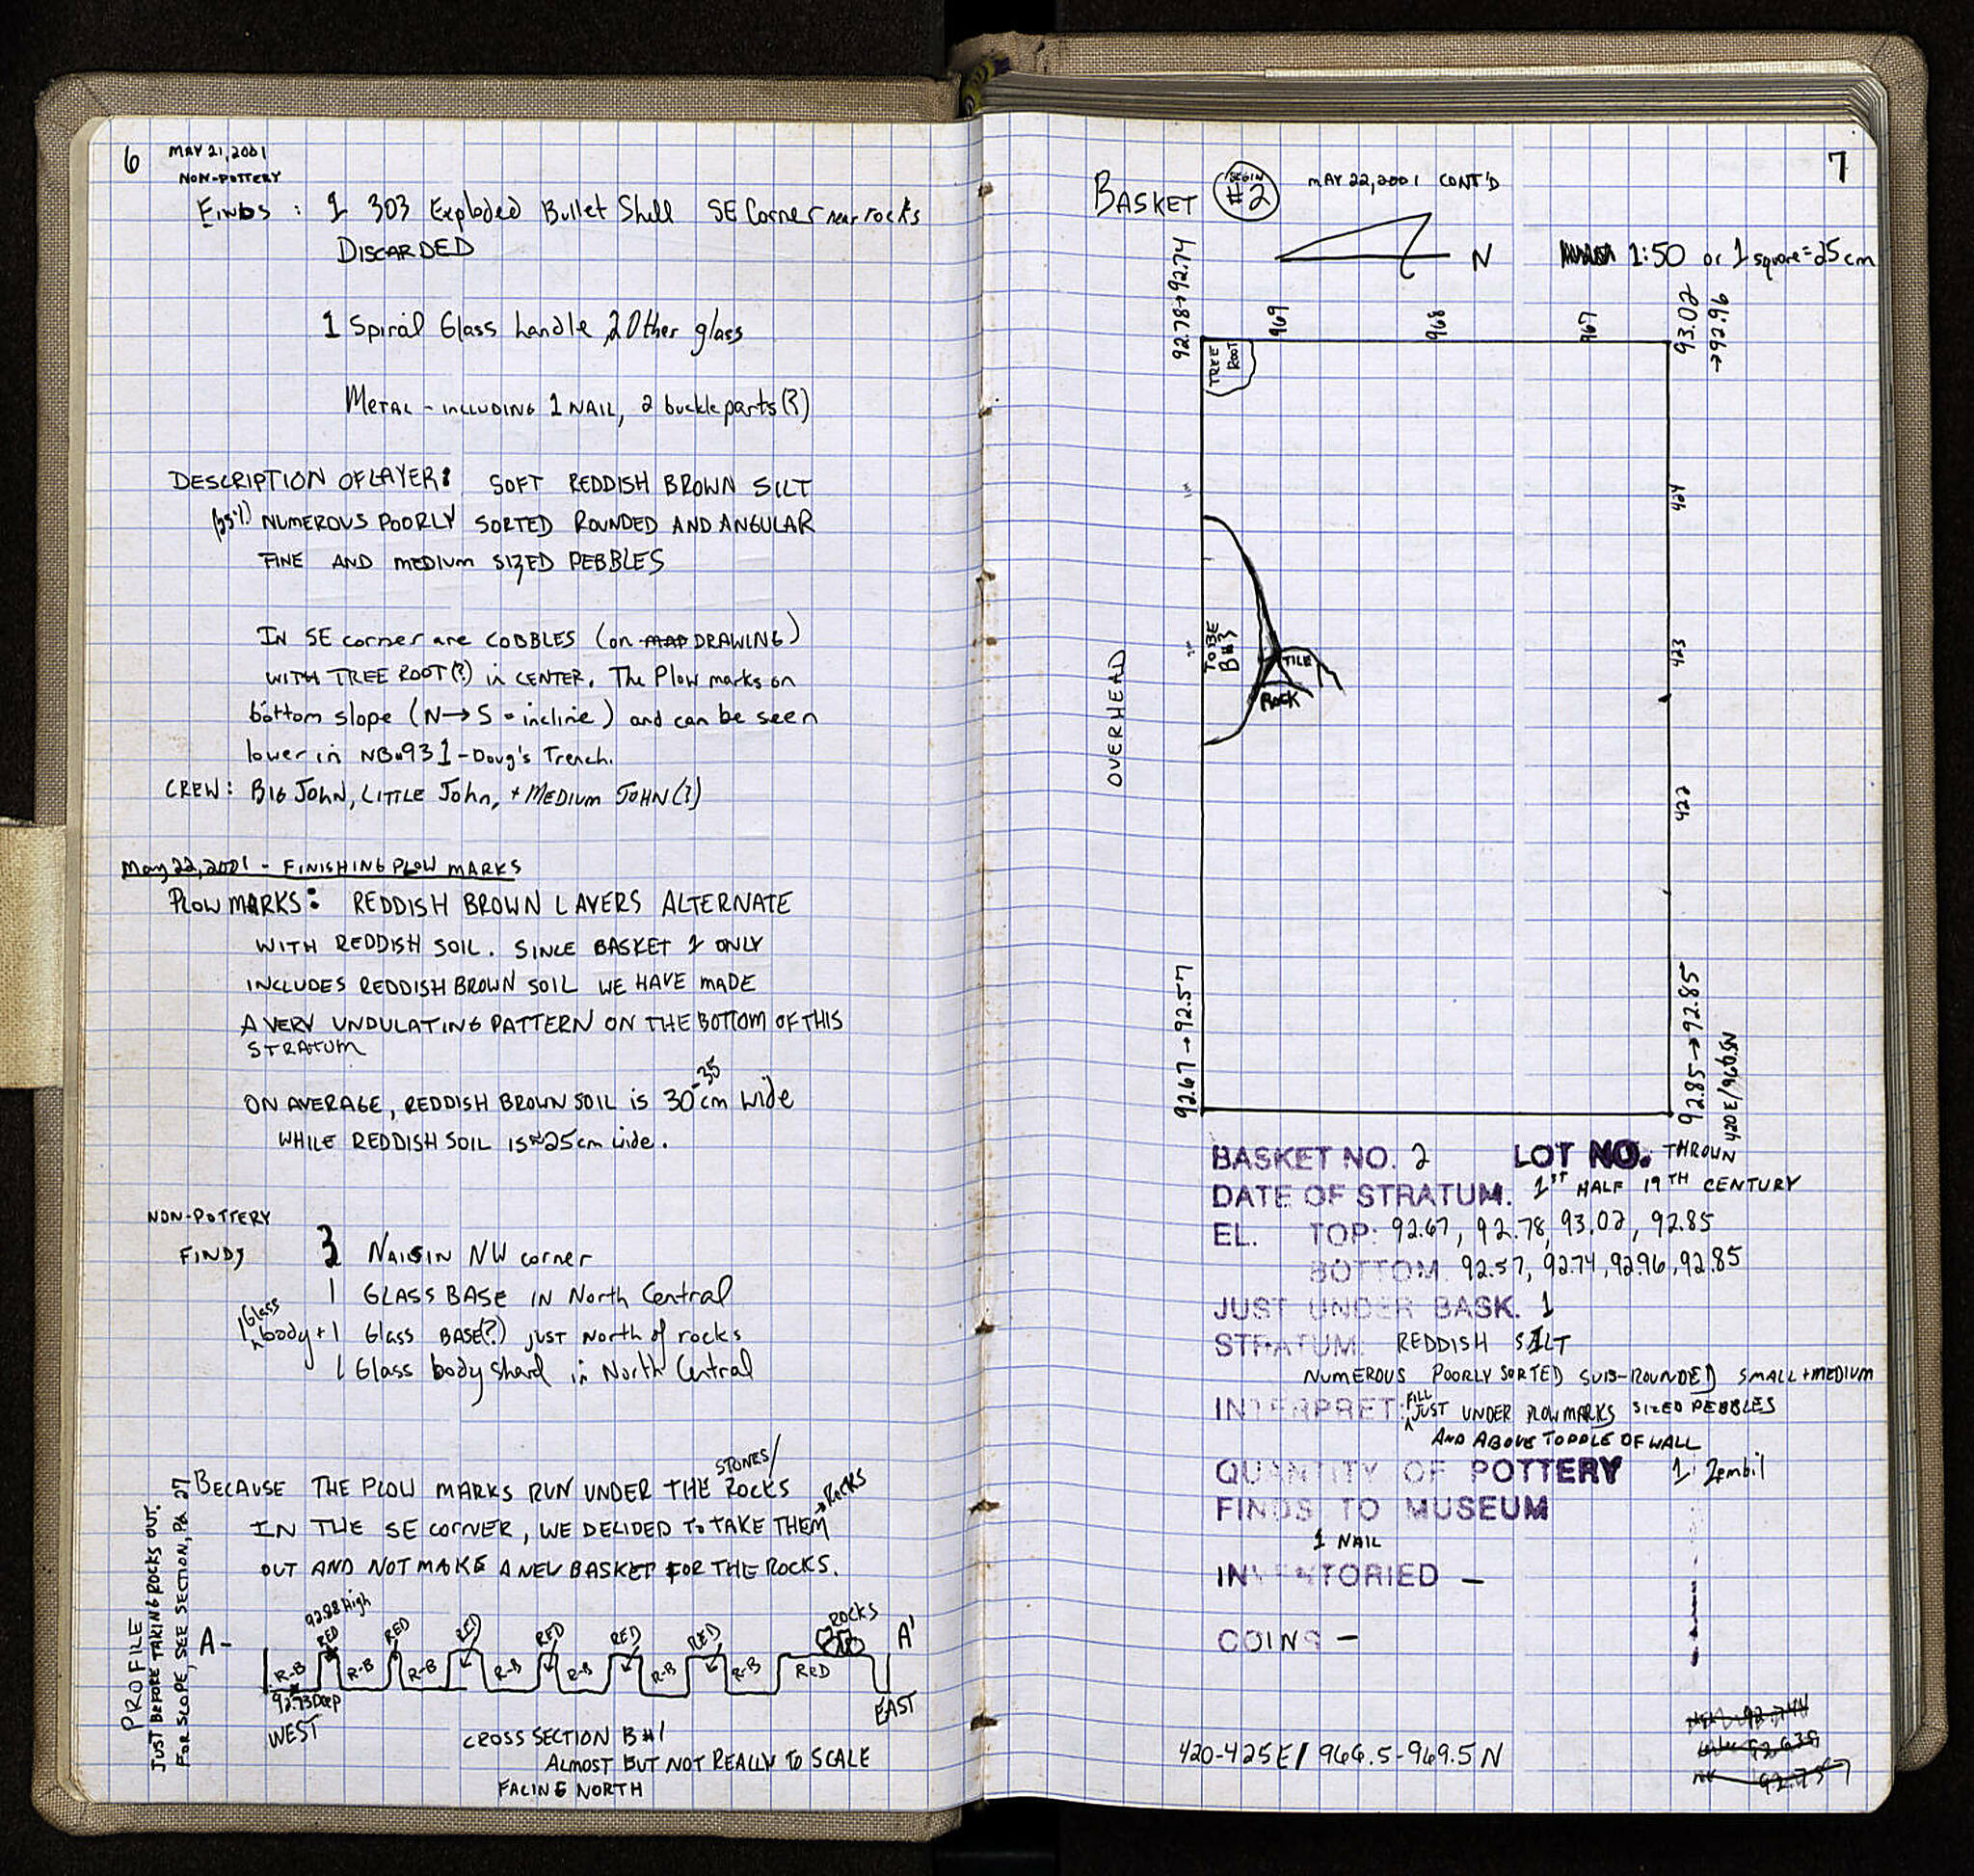 6
MAY 21, 2001
NON-POTTERY
FINDS : 1 303 Exploded Bullet Shell SE Corner near rocks
DISCARDED
1 Spiral Glass handle, 2 Other glass
METAL - INCLUDING 1 NAIL, 2 buckle parts (?)
DESCRIPTION OF LAYER: SOFT REDDISH BROWN SILT
NUMEROUS POORLY SORTED ROUNDED AND ANGULAR
FINE AND MEDIUM SIZED PEBBLES
IN SE corner are COBBLES (on MAP DRAWING)
WITH TREE ROOT(?) in CENTER. The Plow marks on
bottom slope (N→S = incline) and can be seen
lower in NB.931 - Doug's Trench.
CREW: BIG JOHN, LITTLE John, + MEDIUM JOHN (?)
May 22, 2001 - FINISHING PLOW MARKS
PLOW MARKS: REDDISH BROWN LAYERS ALTERNATE
WITH REDDISH SOIL. SINCE BASKET 1 ONLY
INCLUDES REDDISH BROWN SOIL WE HAVE MADE
A VERY UNDULATING PATTERN ON THE BOTTOM OF THIS
STRATUM
ON AVERAGE, REDDISH BROWN SOIL is 30-35 cm wide
WHILE REDDISH SOIL IS ≈25cm wide.
NON-POTTERY
FINDS 3 NAILS IN NW corner
1 GLASS BASE IN North Central
1 Glass body + 1 Glass BASE(?) just North of rocks
1 Glass body shard in North Central
BECAUSE THE PLOW MARKS RUN UNDER THE STONES/ROCKS
IN THE SE CORNER, WE DECIDED TO TAKE THEM → ROCKS
OUT AND NOT MAKE A NEW BASKET FOR THE ROCKS.
PROFILE
JUST BEFORE TAKING ROCKS OUT.
FOR SLOPE, SEE SECTION, PG 27
A-
92.88 High
RED RED RED RED RED RED ROCKS
A'
R-B R-B R-B R-B R-B R-B R-B RED
92.73 Deep
WEST
EAST
CROSS SECTION B#1
ALMOST BUT NOT REALLY TO SCALE
FACING NORTH
7
BASKET BEGIN #2 MAY 22, 2001 CONT'D
N
1:50 or 1 square = 25 cm
92.78→92.74
969
968
967
93.02
→92.96
TREE
ROOT
424
1m
2m
TO BE
B#3
TILE
ROCK
423
OVERHEAD
422
92.67→92.57
92.85→92.85
420E/966.5N
BASKET NO. 2 LOT NO. THROWN
DATE OF STRATUM. 1ST HALF 19TH CENTURY
EL. TOP: 92.67, 92.78, 93.02, 92.85
BOTTOM. 92.57, 92.74, 92.96, 92.85
JUST UNDER BASK. 1
STRATUM: REDDISH SILT
NUMEROUS POORLY SORTED SUB-ROUNDED SMALL + MEDIUM
SIZED PEBBLES
INTERPRET: FILL JUST UNDER PLOW MARKS
AND ABOVE TOPPLE OF WALL
QUANTITY OF POTTERY 1 Zembil
FINDS TO MUSEUM
1 NAIL
INVENTORIED -
COINS -
420-425E / 966.5-969.5 N